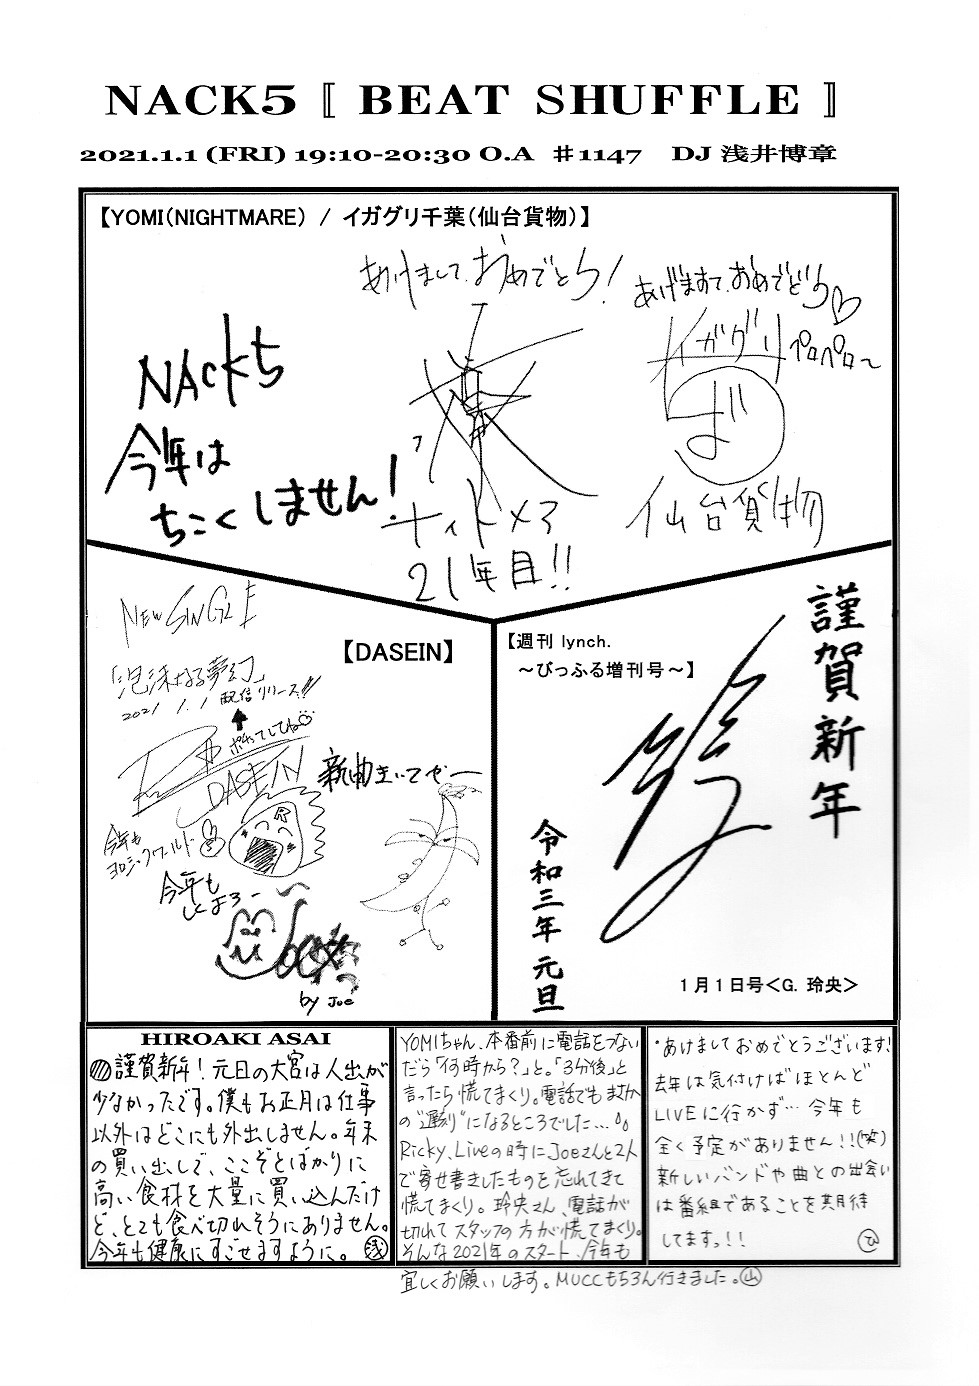 NACK5 〚 BEAT SHUFFLE 〛
2021.1.1 (FRI) 19:10-20:30 O.A ♯1147 DJ 浅井博章
【YOMI(NIGHTMARE) / イガグリ千葉(仙台貨物)】
NACK5
今年は
ちこくしません!
あけまして、おめでとう!
ナイトメア
21年目!!
あげますて、おめでどう♡
イガグリ
ペロペロ〜
仙台貨物
【DASEIN】
NEW SINGLE
「泡沫なる夢幻」
2021 1.1 配信リリース!!!
ポチってしてね
DASEIN
新曲きいてぜー
今年も
ヨロシックワールド
今年も
しくよろー
by Joe
【週刊 lynch.
〜びっふる増刊号〜】
謹賀新年
令和三年 元旦
1月1日号<G. 玲央>
HIROAKI ASAI
謹賀新年!元日の大宮は人出が
少なかったです。僕もお正月は仕事
以外はどこにも外出しません。年末
の買い出しで、ここぞとばかりに
高い食材を大量に買い込んだけ
ど、とても食べ切れそうにありません。
今年も健康にすごせますように。 浅
YOMIちゃん、本番前に電話をつない
だら「何時から?」と。「3分後」と
言ったら慌てまくり。電話でもまさか
の"遅刻"になるところでした…
Ricky、Liveの時にJoeさんと2人
で寄せ書きしたものを忘れてきて
慌てまくり。玲央さん、電話が
切れてスタッフの方が慌てまくり。
そんな2021年のスタート、今年も
宜しくお願いします。MUCCもち3ん行きました。山
・あけましておめでとうございます!
去年は気付けばほとんど
LIVEに行かず… 今年も
全く予定がありません!!(笑)
新しいバンドや曲との出会い
は番組であることを期待
してますっ!! ひ